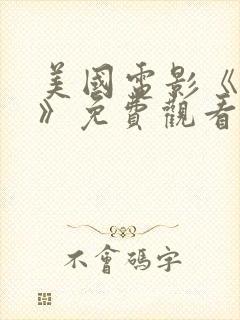 美國電影《
》免費觀看
不會碼字